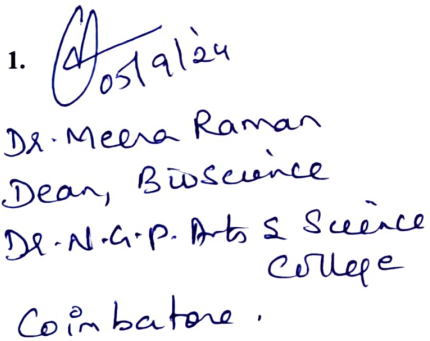 1.
05/9/24
Dr. Meera Raman
Dean, Bioscience
Dr. N.G.P. Arts & Science
College
Coimbatore.